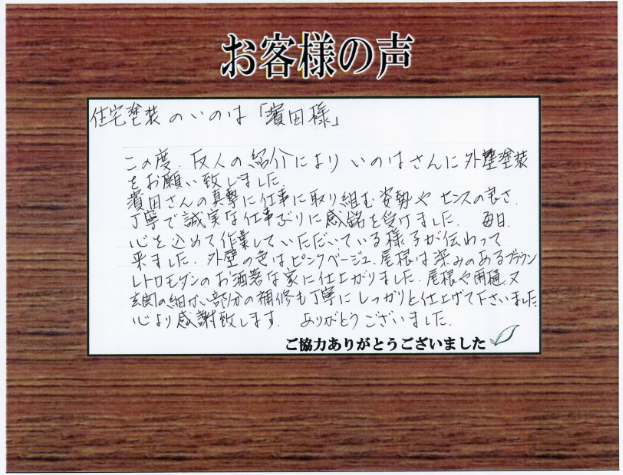 お客様の声
住宅塗装のいのは「濱田様」
この度、友人の紹介により いのはさんに外壁塗装
をお願い致しました。
濱田さんの真摯に仕事に取り組む姿勢や センスの良さ、
丁寧で誠実な仕事ぶりに感銘を受けました。 毎日
心を込めて作業していただいている様子が伝わって
来ました。外壁の色はピンクベージュ、屋根は深みのあるブラウン
レトロモダンのお洒落な家に仕上がりました。屋根や雨樋、又
玄関の細かい部分の補修も丁寧にしっかりと仕上げて下さいました。
心より感謝致します。 ありがとうございました。
ご協力ありがとうございました